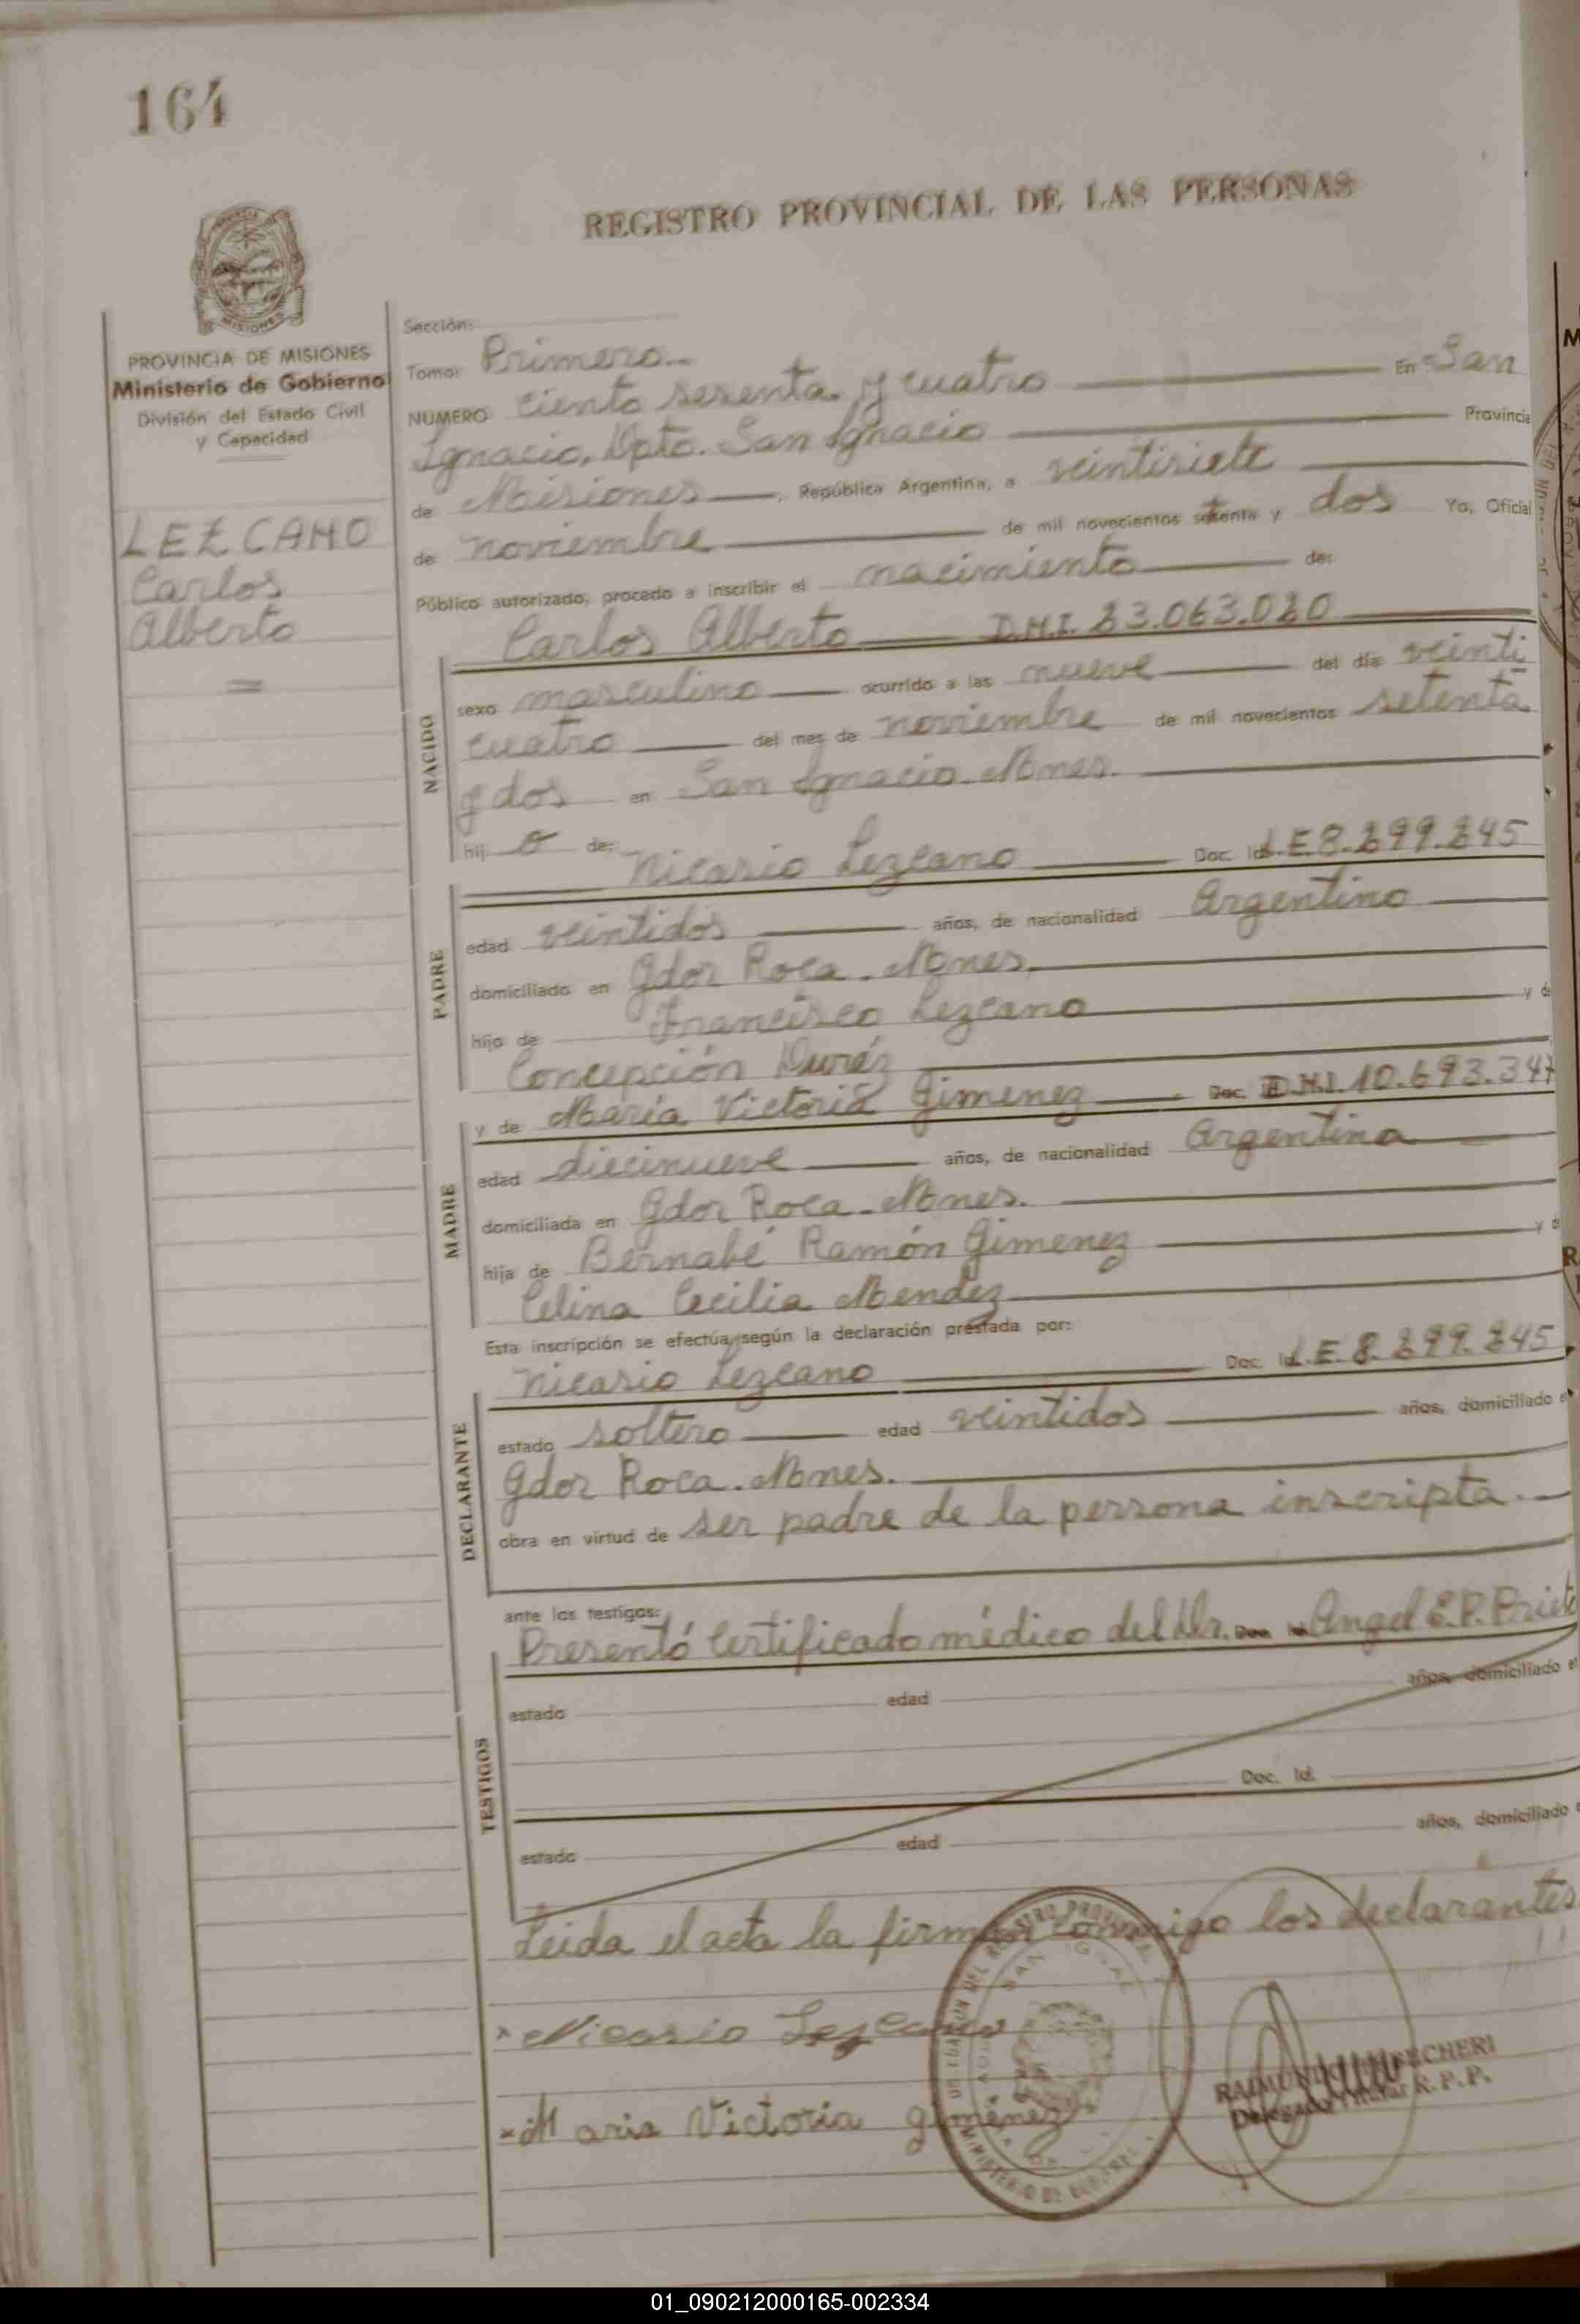 164
REGISTRO PROVINCIAL DE LAS PERSONAS
MISIONES
PROVINCIA DE MISIONES
Ministerio de Gobierno
División del Estado Civil
y Capacidad
LEZCANO
Carlos
Alberto
=
Sección:
Tomo: Primero.-
NUMERO ciento sesenta y cuatro En San
Ignacio, Dpto. San Ignacio Provincia
de Misiones, República Argentina, a veintisiete
de noviembre de mil novecientos setenta y dos Yo, Oficial
Público autorizado, procedo a inscribir el nacimiento de:
Carlos Alberto D.N.I. 23.063.020
NACIDO
sexo masculino ocurrido a las nueve del día veinti
cuatro del mes de noviembre de mil novecientos setenta
y dos en San Ignacio. Mnes.
hij o de: Nicasio Lezcano Doc. Id. L.E. 8.299.245
PADRE
edad veintidos años, de nacionalidad Argentino
domiciliado en Gdor Roca. Mnes.
hijo de Francisco Lezcano y de
Concepción
y de María Victoria Gimenez Doc. Id. D.N.I. 10.693.347
MADRE
edad diecinueve años, de nacionalidad Argentina
domiciliada en Gdor Roca. Mnes.
hija de Bernabé Ramón Gimenez y de
Celina Cecilia Mendez
Esta inscripción se efectúa según la declaración prestada por:
Nicasio Lezcano Doc. Id. L.E. 8.299.245
DECLARANTE
estado soltero edad veintidos años, domiciliado en
Gdor Roca. Mnes.
obra en virtud de ser padre de la persona inscripta.
ante los testigos:
Presentó Certificado médico del Dr. Angel E.P. Prieto
TESTIGOS
estado edad años, domiciliado en
Doc. Id.
estado edad años, domiciliado
Leida el acta la firman conmigo los declarantes
Nicasio Lezcano
Maria Victoria gimenez
RAIMUNDO
Delegado Titular R.P.P.
01_090212000165-002334